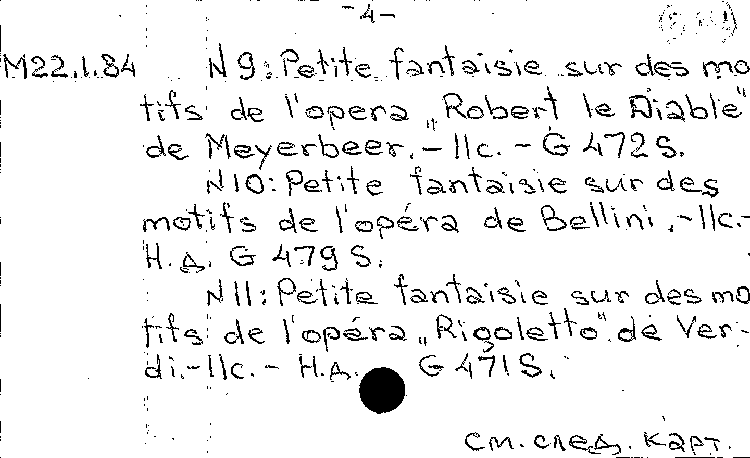 -4-
M22.1.84 N 9: Petite fantaisie sur des mo
tifs de l'opera „Robert le Diable"
de Meyerbeer. - 11c. - G 472 S.
N10: Petite fantaisie sur des
motifs de l'opéra de Bellini. -11c.-
Н.Д. G 479 S.
N 11: Petite fantaisie sur des mo
tifs de l'opéra „Rigoletto" de Ver-
di.-11c. - Н.Д. G 471 S.
см. след. карт.